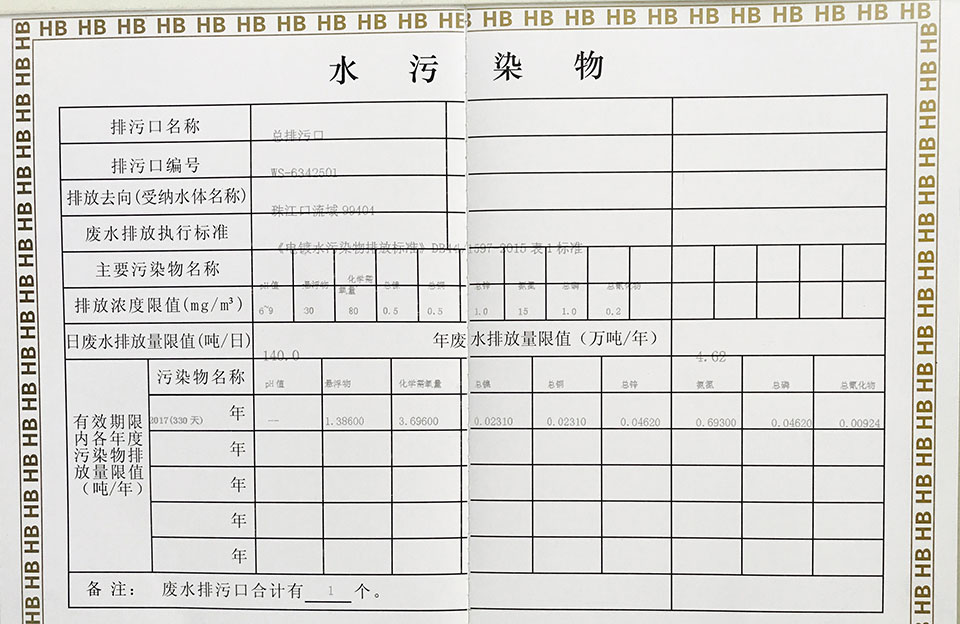 HB HB HB HB HB HB HB HB HB HB HB HB HB HB HB HB HB HB HB HB HB HB HB
水污染物
排污口名称 总排污口
排污口编号 WS-6342501
排放去向(受纳水体名称) 珠江口流域 99404
废水排放执行标准 《电镀水污染物排放标准》DB44/1597-2015 表1标准
主要污染物名称 pH值 悬浮物 化学需氧量 总镍 总铜 总锌 氨氮 总磷 总氰化物
排放浓度限值(mg/m³) 6~9 30 80 0.5 0.5 1.0 15 1.0 0.2
日废水排放量限值(吨/日) 140.0 年废水排放量限值(万吨/年) 4.62
污染物名称 pH值 悬浮物 化学需氧量 总镍 总铜 总锌 氨氮 总磷 总氰化物
有效期限内各年度污染物排放量限值(吨/年)
2017(330天) 年 — 1.38600 3.69600 0.02310 0.02310 0.04620 0.69300 0.04620 0.00924
年
年
年
年
备注: 废水排污口合计有 1 个。